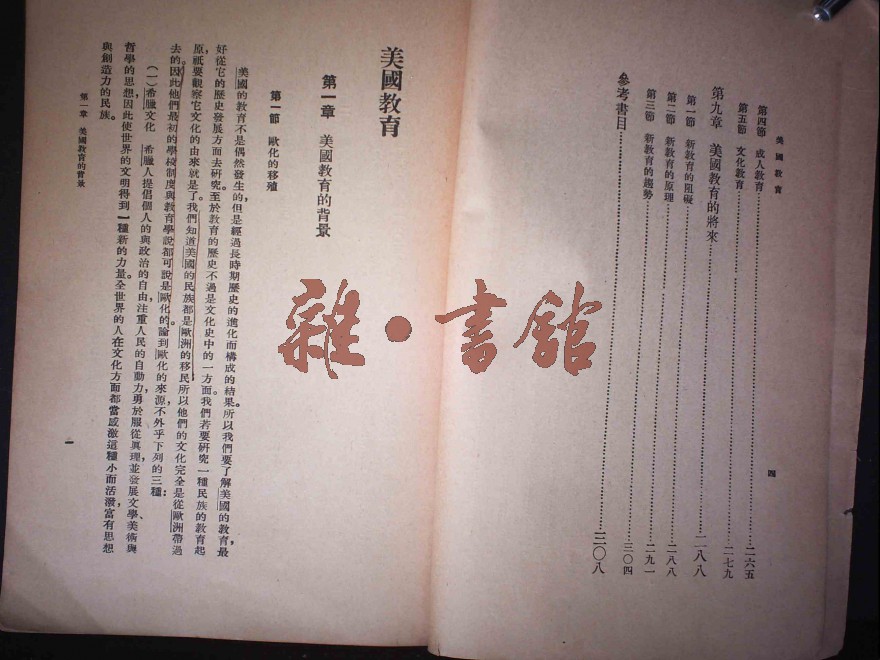 美國教育
第四節 成人教育……二六五
第五節 文化教育……二七九
第九章 美國教育的將來……二八八
第一節 新教育的阻礙……二八八
第二節 新教育的原理……二九一
第三節 新教育的趨勢……三〇四
參考書目……三〇八
四
美國教育
第一章 美國教育的背景
第一節 歐化的移殖
美國的教育不是偶然發生的,但是經過長時期歷史的進化而構成的結果。所以我們要了解美國的教育,最
好從它的歷史發展方面去研究。至於教育的歷史不過是文化史中的一方面。我們若要研究一種民族的教育起
原,祇要觀察它文化的由來就是了。我們知道美國的民族都是歐洲的移民,所以他們的文化完全是從歐洲帶過
去的。因此他們最初的學校制度與教育學說都可說是歐化的。論到歐化的來源,不外乎下列的三種:
(一)希臘文化 希臘人提倡個人的與政治的自由,注重人民的自動力,勇於服從眞理,並發展文學、美術與
哲學的思想,因此使世界的文明得到一種新的力量。全世界的人在文化方面都當感激這種小而活潑,富有思想
與創造力的民族。
第一章 美國教育的背景
一
雜·書館